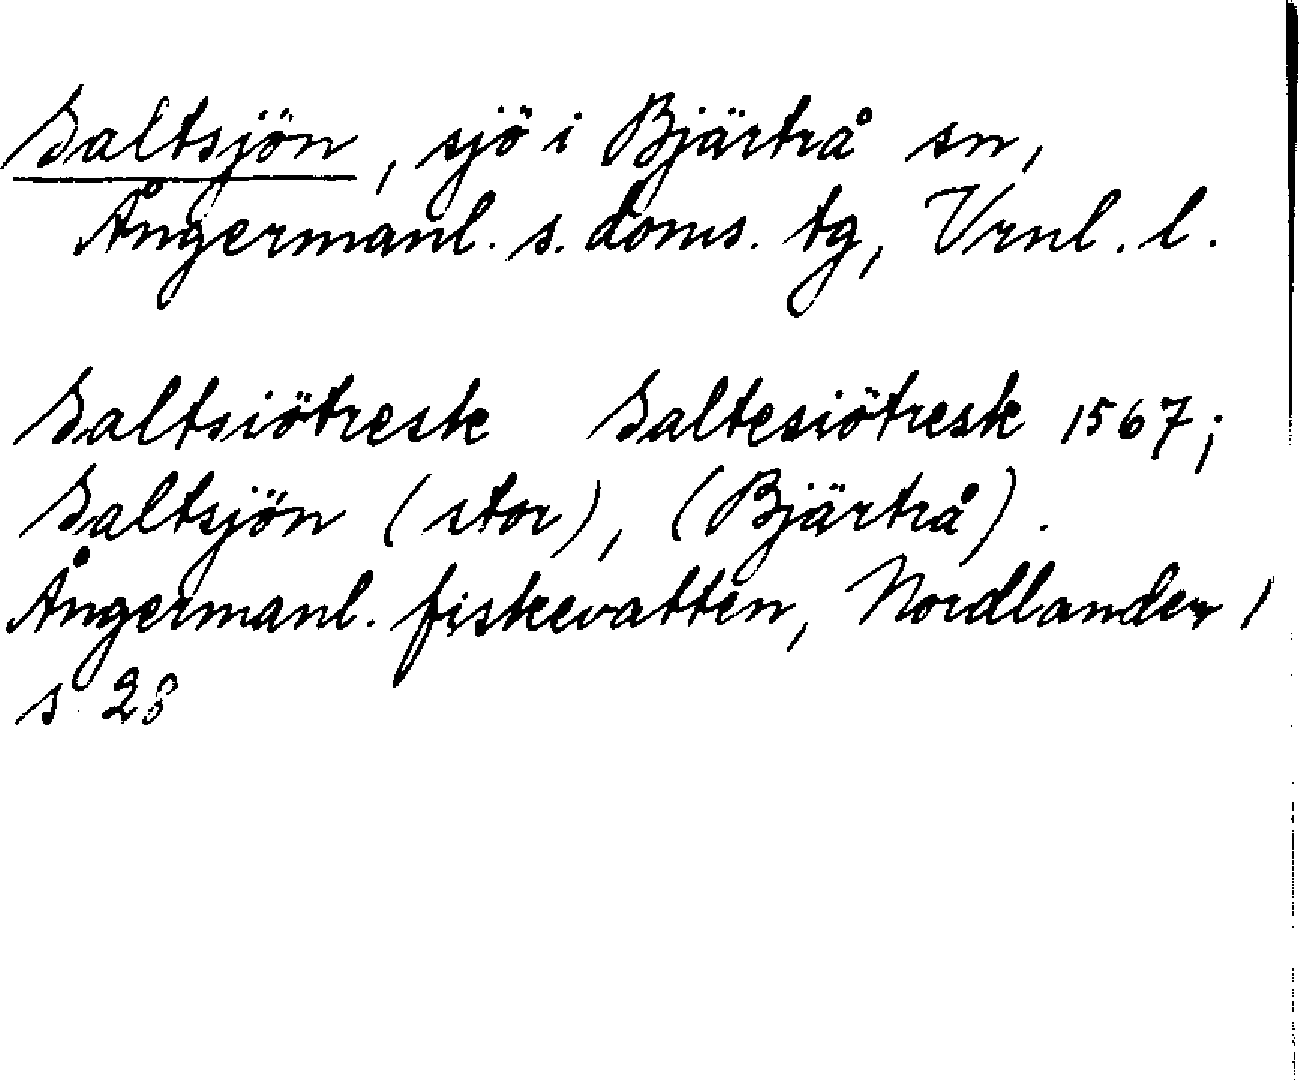 Saltsjön, sjö i Bjärtrå sn,
Ångermanl. s. doms. tg, Vrnl. l.
Saltsiötresk Saltesiötresk 1567;
Saltsjön (stor), (Bjärtrå).
Ångermanl. fiskevatten, Nordlander 1
s 28